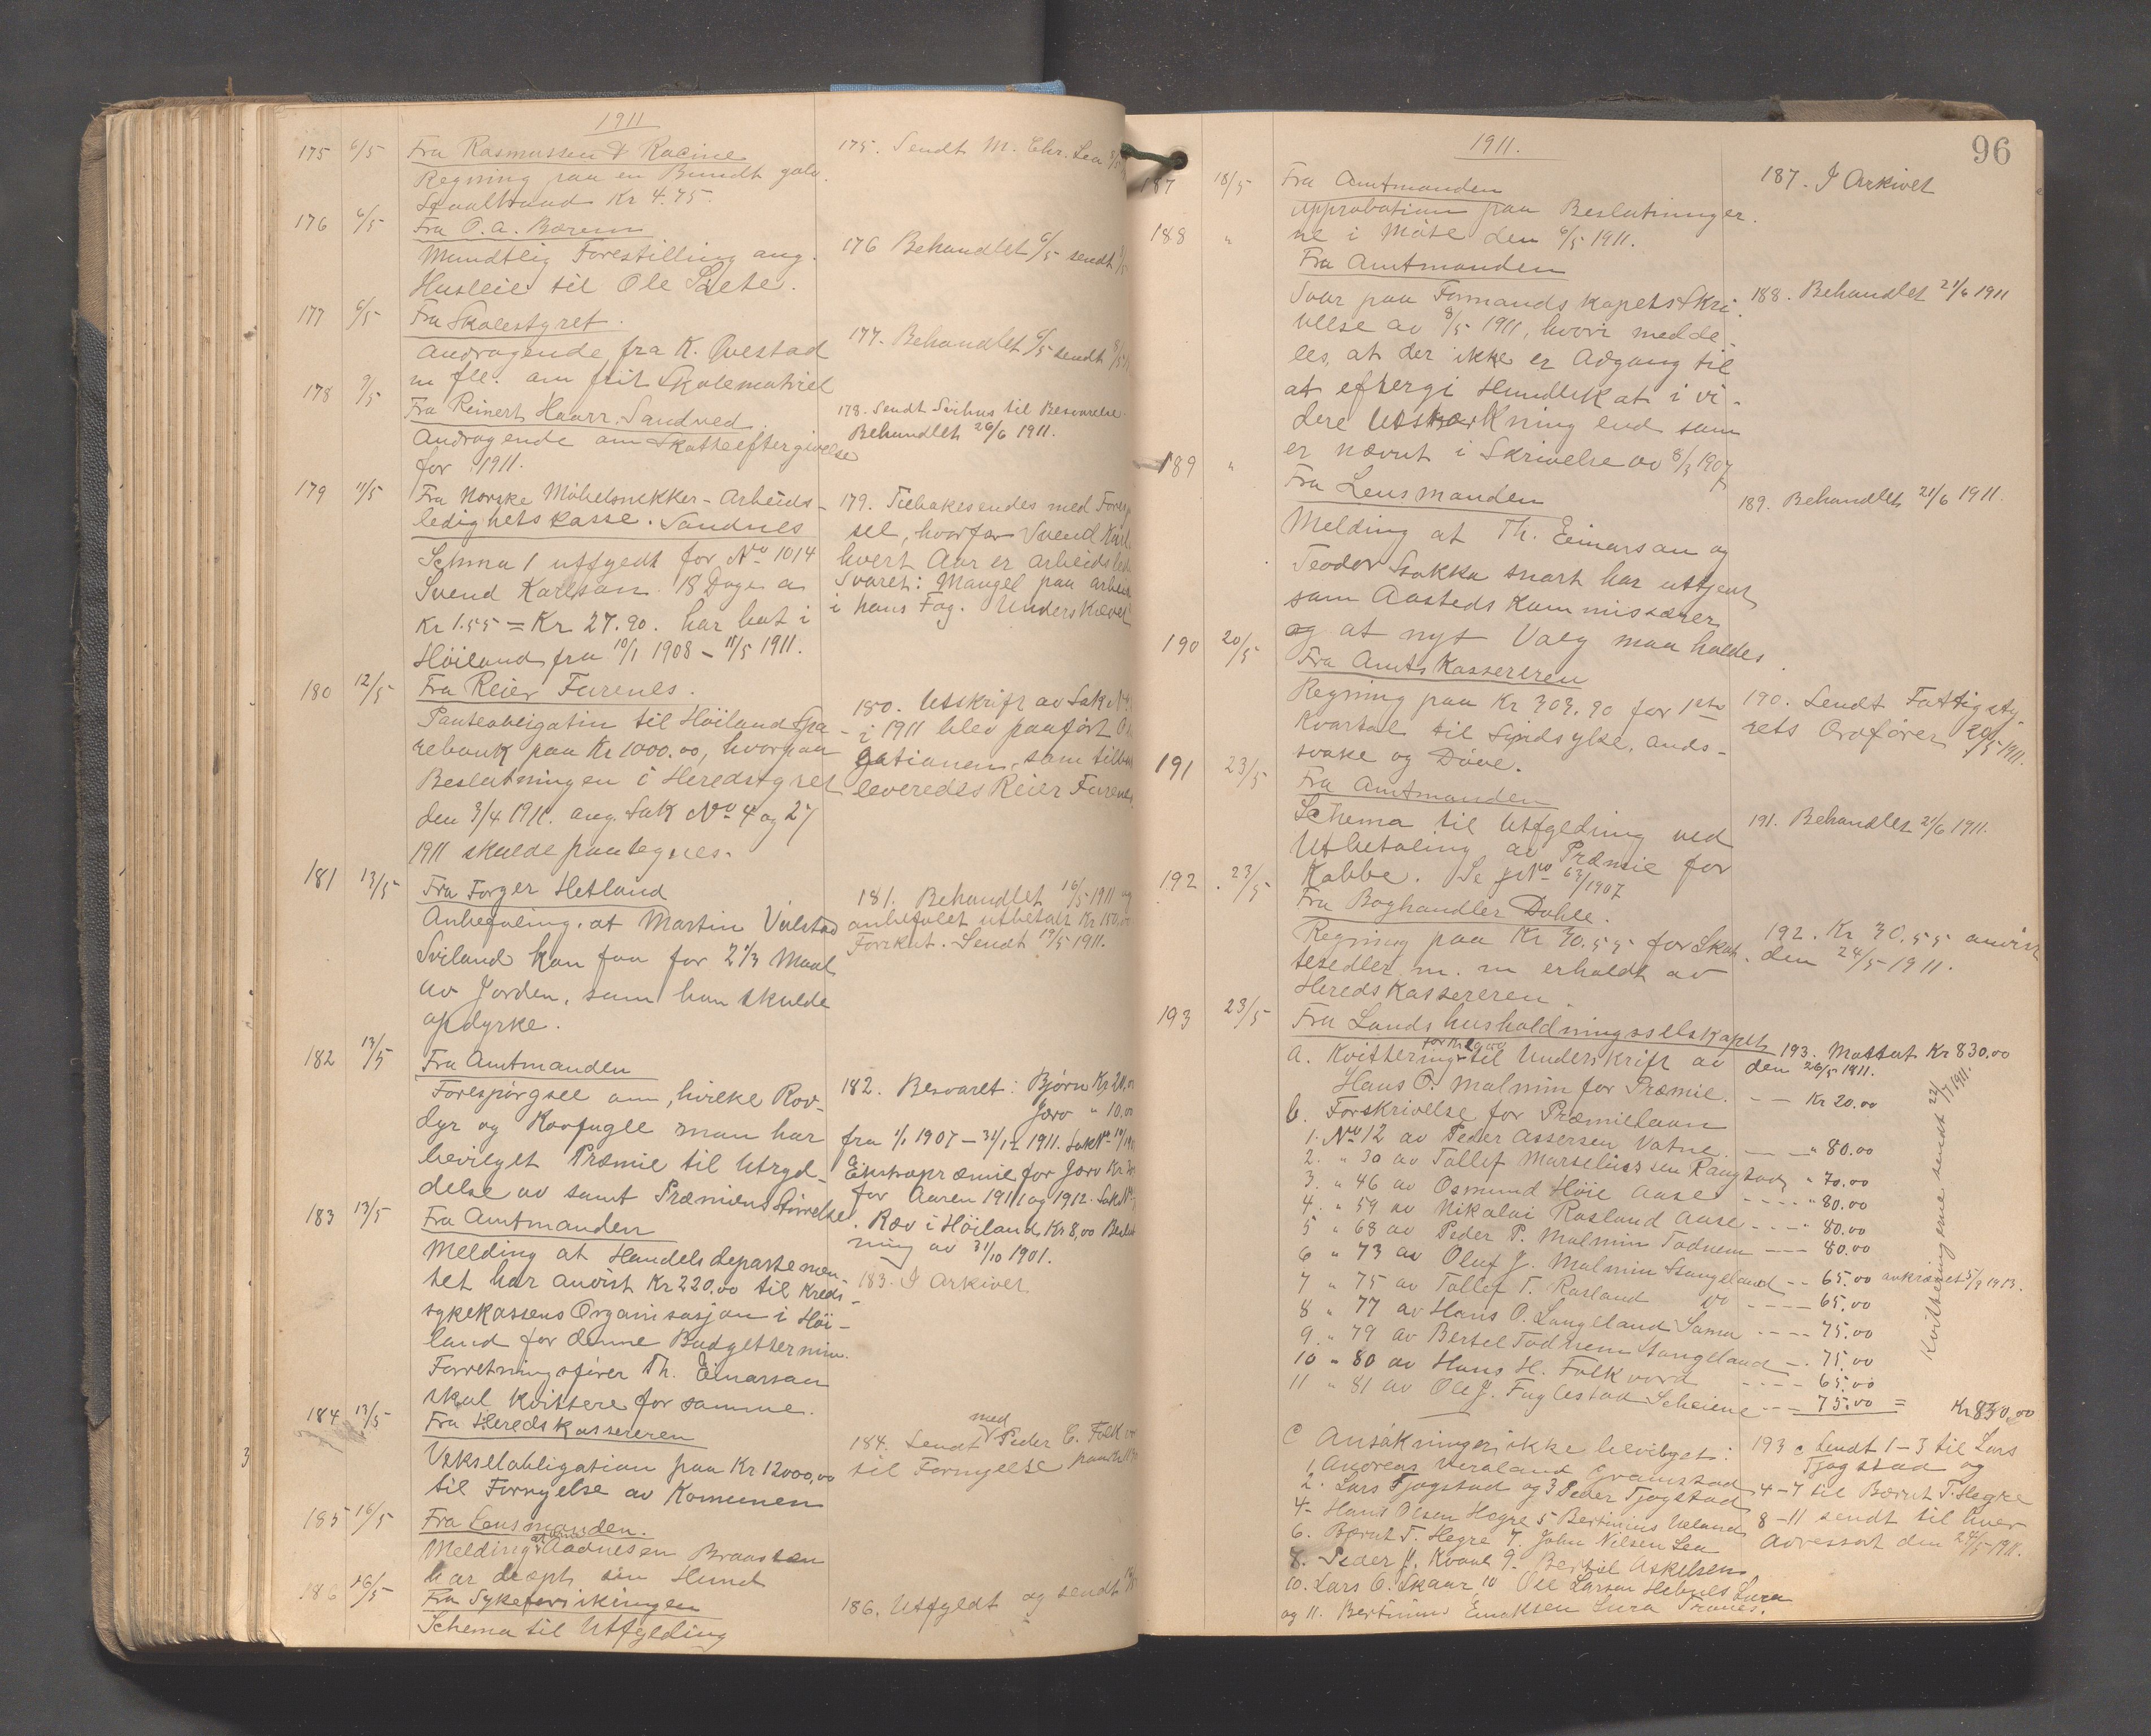 1911
175 6/5 Fra Rasmussen & Racine
Regning paa en Bundt galv.
Staaltraad Kr 4.75.
175. Sendt M. Chr. Lea
176 6/5 Fra O. A. Bærem
Mundtlig Forestilling ang.
Husleie til Ole Sæte.
176 Behandlet 6/5 sendt
177 6/5 Fra Skolestyret.
Andragende fra K. Qvestad
m fle. om frit Skolematriel
177. Behandlet 6/5 sendt
178 9/5 Fra Reinert Haarr, Sandved
Andragende om Skatteeftergivelse
for 1911.
178. Sendt Svihus til Besvarelse.
Behandlet 26/6 1911.
179 11/5 Fra Norske Möbelsnekker-Arbeids-
ledighetskasse. Sandnes
Schma 1 utfyedt for No 1014
Svend Karlsson. 18 Dage a
Kr 1.55 = Kr 27.90. har bot i
Höiland fra 10/1 1908 – 11/5 1911.
179. Tilbakesendes med
sel, hvorfor Svend
hvert Aar er arbeids
Svaret: Mangel paa
i hans Fag. Underskrevet
180 12/5 Fra Reier Furenes.
Panteobligatin til Höiland Spa-
rebank paa Kr 1000.00, hvorpaa
Beslutningen i Heredstyret
den 3/4 1911. ang. Sak No 4 og 27
1911 skulde paategnes.
180. Utskrift av Sak
i 1911 blev paaført
gationen, som
leveredes Reier Furenes
181 13/5 Fra Torger Hetland
Anbefaling. at Martin Vælstad
Sviland kan faa for 2 1/3 Maal
av Jorden, som han skulde
opdyrke.
181. Behandlet 16/5 1911 og
anbefalet utbetalt Kr 150.00
Forskut. Sendt 19/5 1911.
182 13/5 Fra Amtmanden
Forespørgsel om, hvilke Rov-
dyr og Rovfugle man har
bevilget Præmie til Utryd-
delse av samt Præmiens Störrelse.
182. Besvaret: Bjørn Kr 20,00
Jærv " 10.00
fra 1/1 1907 – 31/12 1911.
Ekstrapræmie for Jærv
for Aaren 1911 og 1912.
Ræv i Höiland Kr 8,00 Beslut
ning av 31/10 1901.
183 13/5 Fra Amtmanden
Melding at Handelsdepartemen-
tet har anvist Kr 220.00 til Kreds-
sykekassens Organisasjon i Höi-
land for denne Budgettermin.
Forretningsfører Th. Einarsan
skal kvittere for samme.
183. I Arkivet
184 13/5 Fra Heredskassereren
Vekselobligation paa Kr 12000,00
til Fornyelse av Komunen
184. Sendt med Peder C. Folkvor
til Fornyelse
185 16/5 Fra Lensmanden.
Melding Aadnesen Braasten
har dræpt sin Hund
186 16/5 Fra Syketrvikingen
Schema til Utfylding
186. Utfyldt og sendt
96
1911.
187 18/5 Fra Amtmanden
Approbation paa Beslutninger.
ne i Möte den 6/5 1911.
187. I Arkivet
188 " Fra Amtmanden
Svar paa Formandskapets Skri-
velse av 8/5 1911, hvori medde-
les, at der ikke er Adgang til
at eftergi Hundeskat i vi-
dere Utstrækning end som
er nævnt i Skrivelse av 8/3 1907
188. Behandlet 21/6 1911
189 " Fra Lensmanden
Melding at Th. Einarsan og
Teodor Stokka snart har uttjent
som Aasteds Kommissærer
og at nyt Valg maa holdes.
189. Behandlet 21/6 1911.
190 20/5 Fra Amtskassereren
Regning paa Kr 303.90 for 1ste
Kvartal til Sindsyke, Ands-
svake og Döve.
190. Sendt Fattigsty
rets Ordfører 20/5 1911.
191 23/5 Fra Amtmanden
Schema til Utfylding ved
Utbetaling av Præmie for
Kobbe. Se jNo 63/1907
191. Behandlet 21/6 1911.
192 23/5 Fra Boghandler Dahle.
Regning paa Kr 30.55 for Skat-
tesedler m. m erholdt av
Heredskassereren.
192. Kr 30.55 anvist
den 24/5 1911.
193 23/5 Fra Landshusholdningsselskapet
a. Kvittering til Underskrift av
Hans O. Malmin for Præmie. – – Kr 20.00
193. Mottat Kr 830.00
den 26/5 1911.
b. Forskrivelse for Præmielaan
1. No 12 av Peder Assersen Vatne. – – " 80.00
2. " 30 av Tollef Marseliussen Rangstad " 70.00
3. " 46 av Osmund Höie Aase – – – " 80.00
4. " 59 av Nikolai Rosland Aase – – – " 80.00
5 " 68 av Peder P. Malmin Todnem – – – 80.00
6 " 73 av Oluf J. Malmin Stangeland – – 65.00 avkrævet 5/9 1913.
7 " 75 av Tollef T. Rosland do – – – – 65.00
8 " 77 av Hans O. Langeland Soma – – – – 75.00
9. " 79 av Bertel Todnem Stangeland – – 75.00
10 " 80 av Hans H. Folkvord – – – – 65.00
11 " 81 av Ole J. Fuglestad Scheiene – – – 75.00 = Kr 830,00
Kvitteringerne sendt 22/7 1911.
C Ansøkninger ikke bevilget:
1. Andreas Veraland Gramstad
2. Lars Tjogstad og 3 Peder Tjogstad
4– Hans Olsen Hogre 5 Bertinius Ueland
6. Bernt T. Hegre 7. John Nilsen Lea
8. Peder J. Kvaal 9. Bertil Askelsen
10. Lars O. Skaar 10 Ole Larsen Hebnes Lura
og 11. Bertinius Enoksen Lura Tranes.
193 c Sendt 1–3 til Lars
Tjogstad og
4–7 til Bernt T. Hegre
8–11 sendt til hver
Adressat den 24/5 1911.